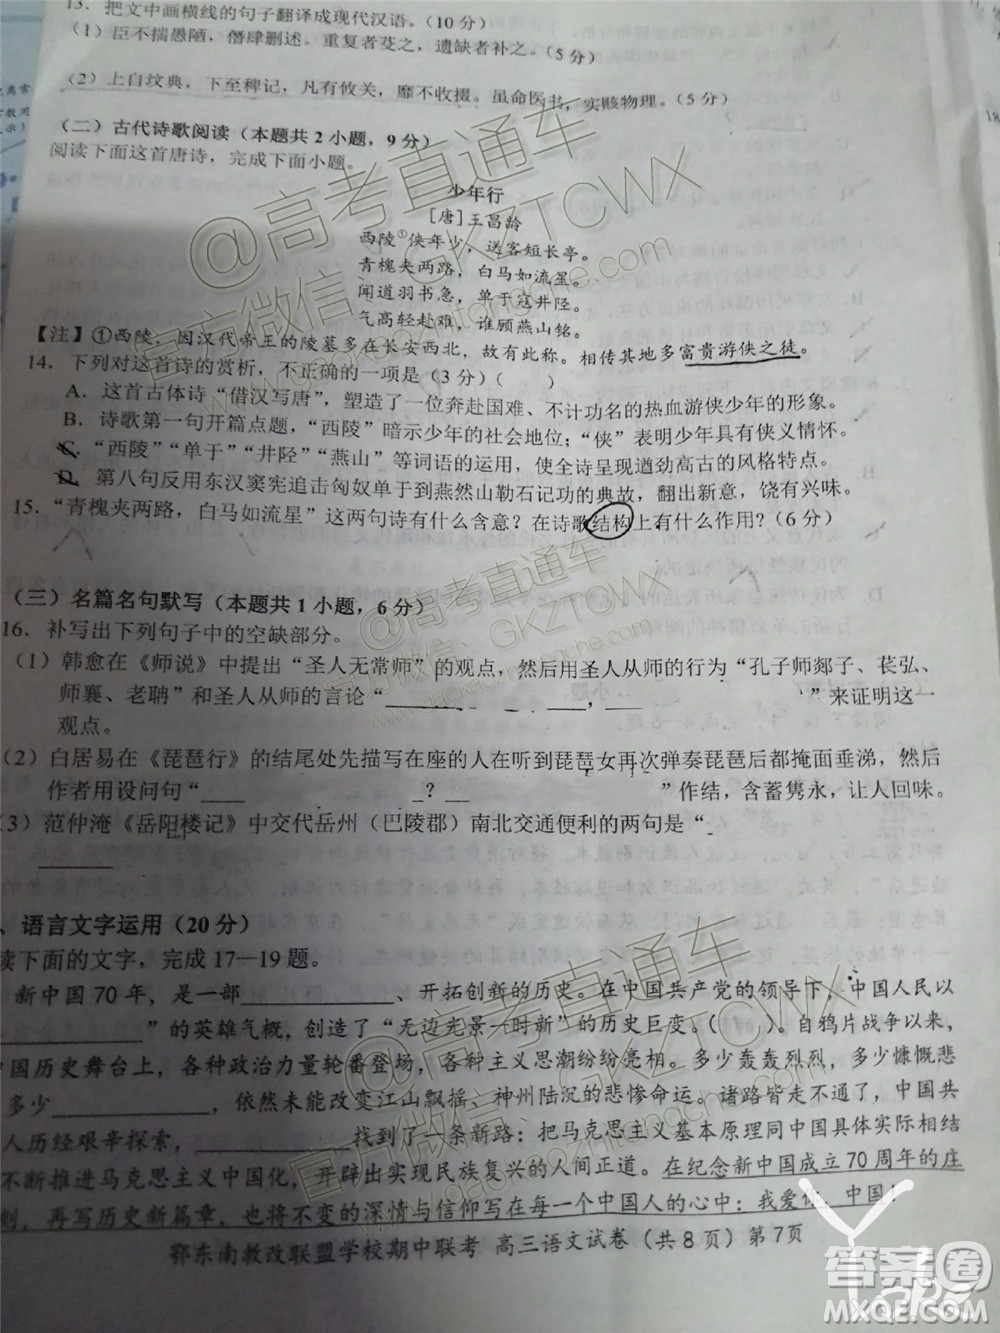 13．把文中画横线的句子翻译成现代汉语。(10 分)
（1）臣不揣愚陋，僭肆删述。重复者芟之，遗缺者补之。(5 分)
（2）上自坟典，下至稗记，凡有攸关，靡不收掇。虽命医书，实赅物理。(5 分)
（二）古代诗歌阅读（本题共 2 小题，9 分）
阅读下面这首唐诗，完成下面小题。
少年行
［唐］王昌龄
西陵①侠年少，送客短长亭。
青槐夹两路，白马如流星。
闻道羽书急，单于寇井陉。
气高轻赴难，谁顾燕山铭。
【注】①西陵，因汉代帝王的陵墓多在长安西北，故有此称。相传其地多富贵游侠之徒。
14．下列对这首诗的赏析，不正确的一项是(3 分)（ ）
A．这首古体诗“借汉写唐”，塑造了一位奔赴国难、不计功名的热血游侠少年的形象。
B．诗歌第一句开篇点题，“西陵”暗示少年的社会地位；“侠”表明少年具有侠义情怀。
C．“西陵”“单于”“井陉”“燕山”等词语的运用，使全诗呈现遒劲高古的风格特点。
D．第八句反用东汉窦宪追击匈奴单于到燕然山勒石记功的典故，翻出新意，饶有兴味。
15．“青槐夹两路，白马如流星”这两句诗有什么含意？在诗歌结构上有什么作用？(6 分)
（三）名篇名句默写（本题共 1 小题，6 分）
16．补写出下列句子中的空缺部分。
（1）韩愈在《师说》中提出“圣人无常师”的观点，然后用圣人从师的行为“孔子师郯子、苌弘、
师襄、老聃”和圣人从师的言论“______，______”来证明这一
观点。
（2）白居易在《琵琶行》的结尾处先描写在座的人在听到琵琶女再次弹奏琵琶后都掩面垂涕，然后
作者用设问句“______？______”作结，含蓄隽永，让人回味。
（3）范仲淹《岳阳楼记》中交代岳州（巴陵郡）南北交通便利的两句是“
______
、语言文字运用（20 分）
读下面的文字，完成 17—19 题。
新中国 70 年，是一部______、开拓创新的历史。在中国共产党的领导下，中国人民以
______”的英雄气概，创造了“无边光景一时新”的历史巨变。（ ）。自鸦片战争以来，
中国历史舞台上，各种政治力量轮番登场，各种主义思潮纷纷亮相。多少轰轰烈烈，多少慷慨悲
多少______，依然未能改变江山飘摇、神州陆沉的悲惨命运。诸路皆走不通之际，中国共
人历经艰辛探索，______找到了一条新路：把马克思主义基本原理同中国具体实际相结
不断推进马克思主义中国化，开辟出实现民族复兴的人间正道。在纪念新中国成立 70 周年的庄
刻，再写历史新篇章，也将不变的深情与信仰写在每一个中国人的心中：我爱你，中国！
鄂东南教改联盟学校期中联考 高三语文试卷（共 8 页）第 7 页
@高考直通车
官方微信：GKZTCWX
www.gaokaozhitongche.com
@高考直通车
官方微信：GKZTCWX
www.gaokaozhitongche.com
@高考直通车
官方微信：GKZTCWX
www.gaokaozhitongche.com
答案圈
MXQE.COM